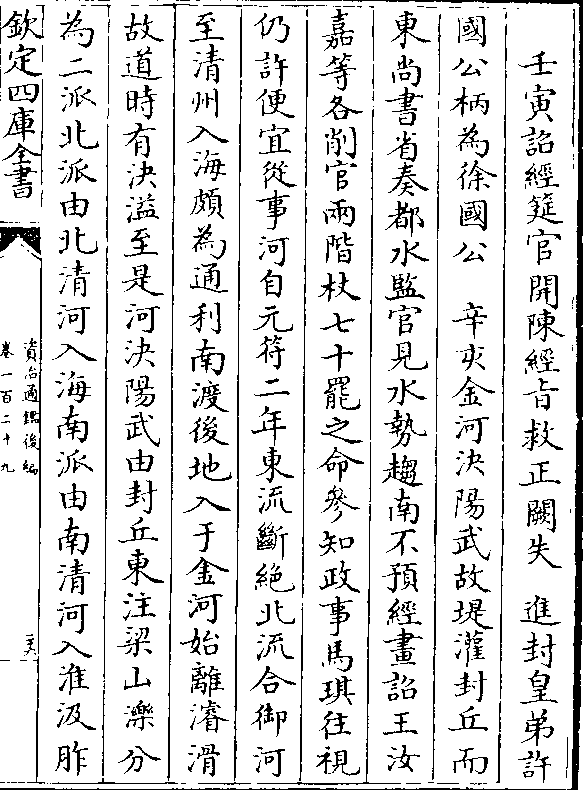 壬寅詔經筵官開陳經旨救正闕失　進封皇弟許
國公柄為徐國公　辛亥金河決陽武故堤灌封丘而
東尚書省奏都水監官見水勢趨南不預經畫詔王汝
嘉等各削官兩階杖七十罷之命參知政事馬琪往視
仍許便宜從事河自元符二年東流斷絶北流合御河
至清州入海頗為通利南渡後地入于金河始離濬滑
故道時有決溢至是河決陽武由封丘東注梁山濼分
為二派北派由北清河入海南派由南清河入淮汲胙
欽定四庫全書
資治通鑑後編
卷一百二十九